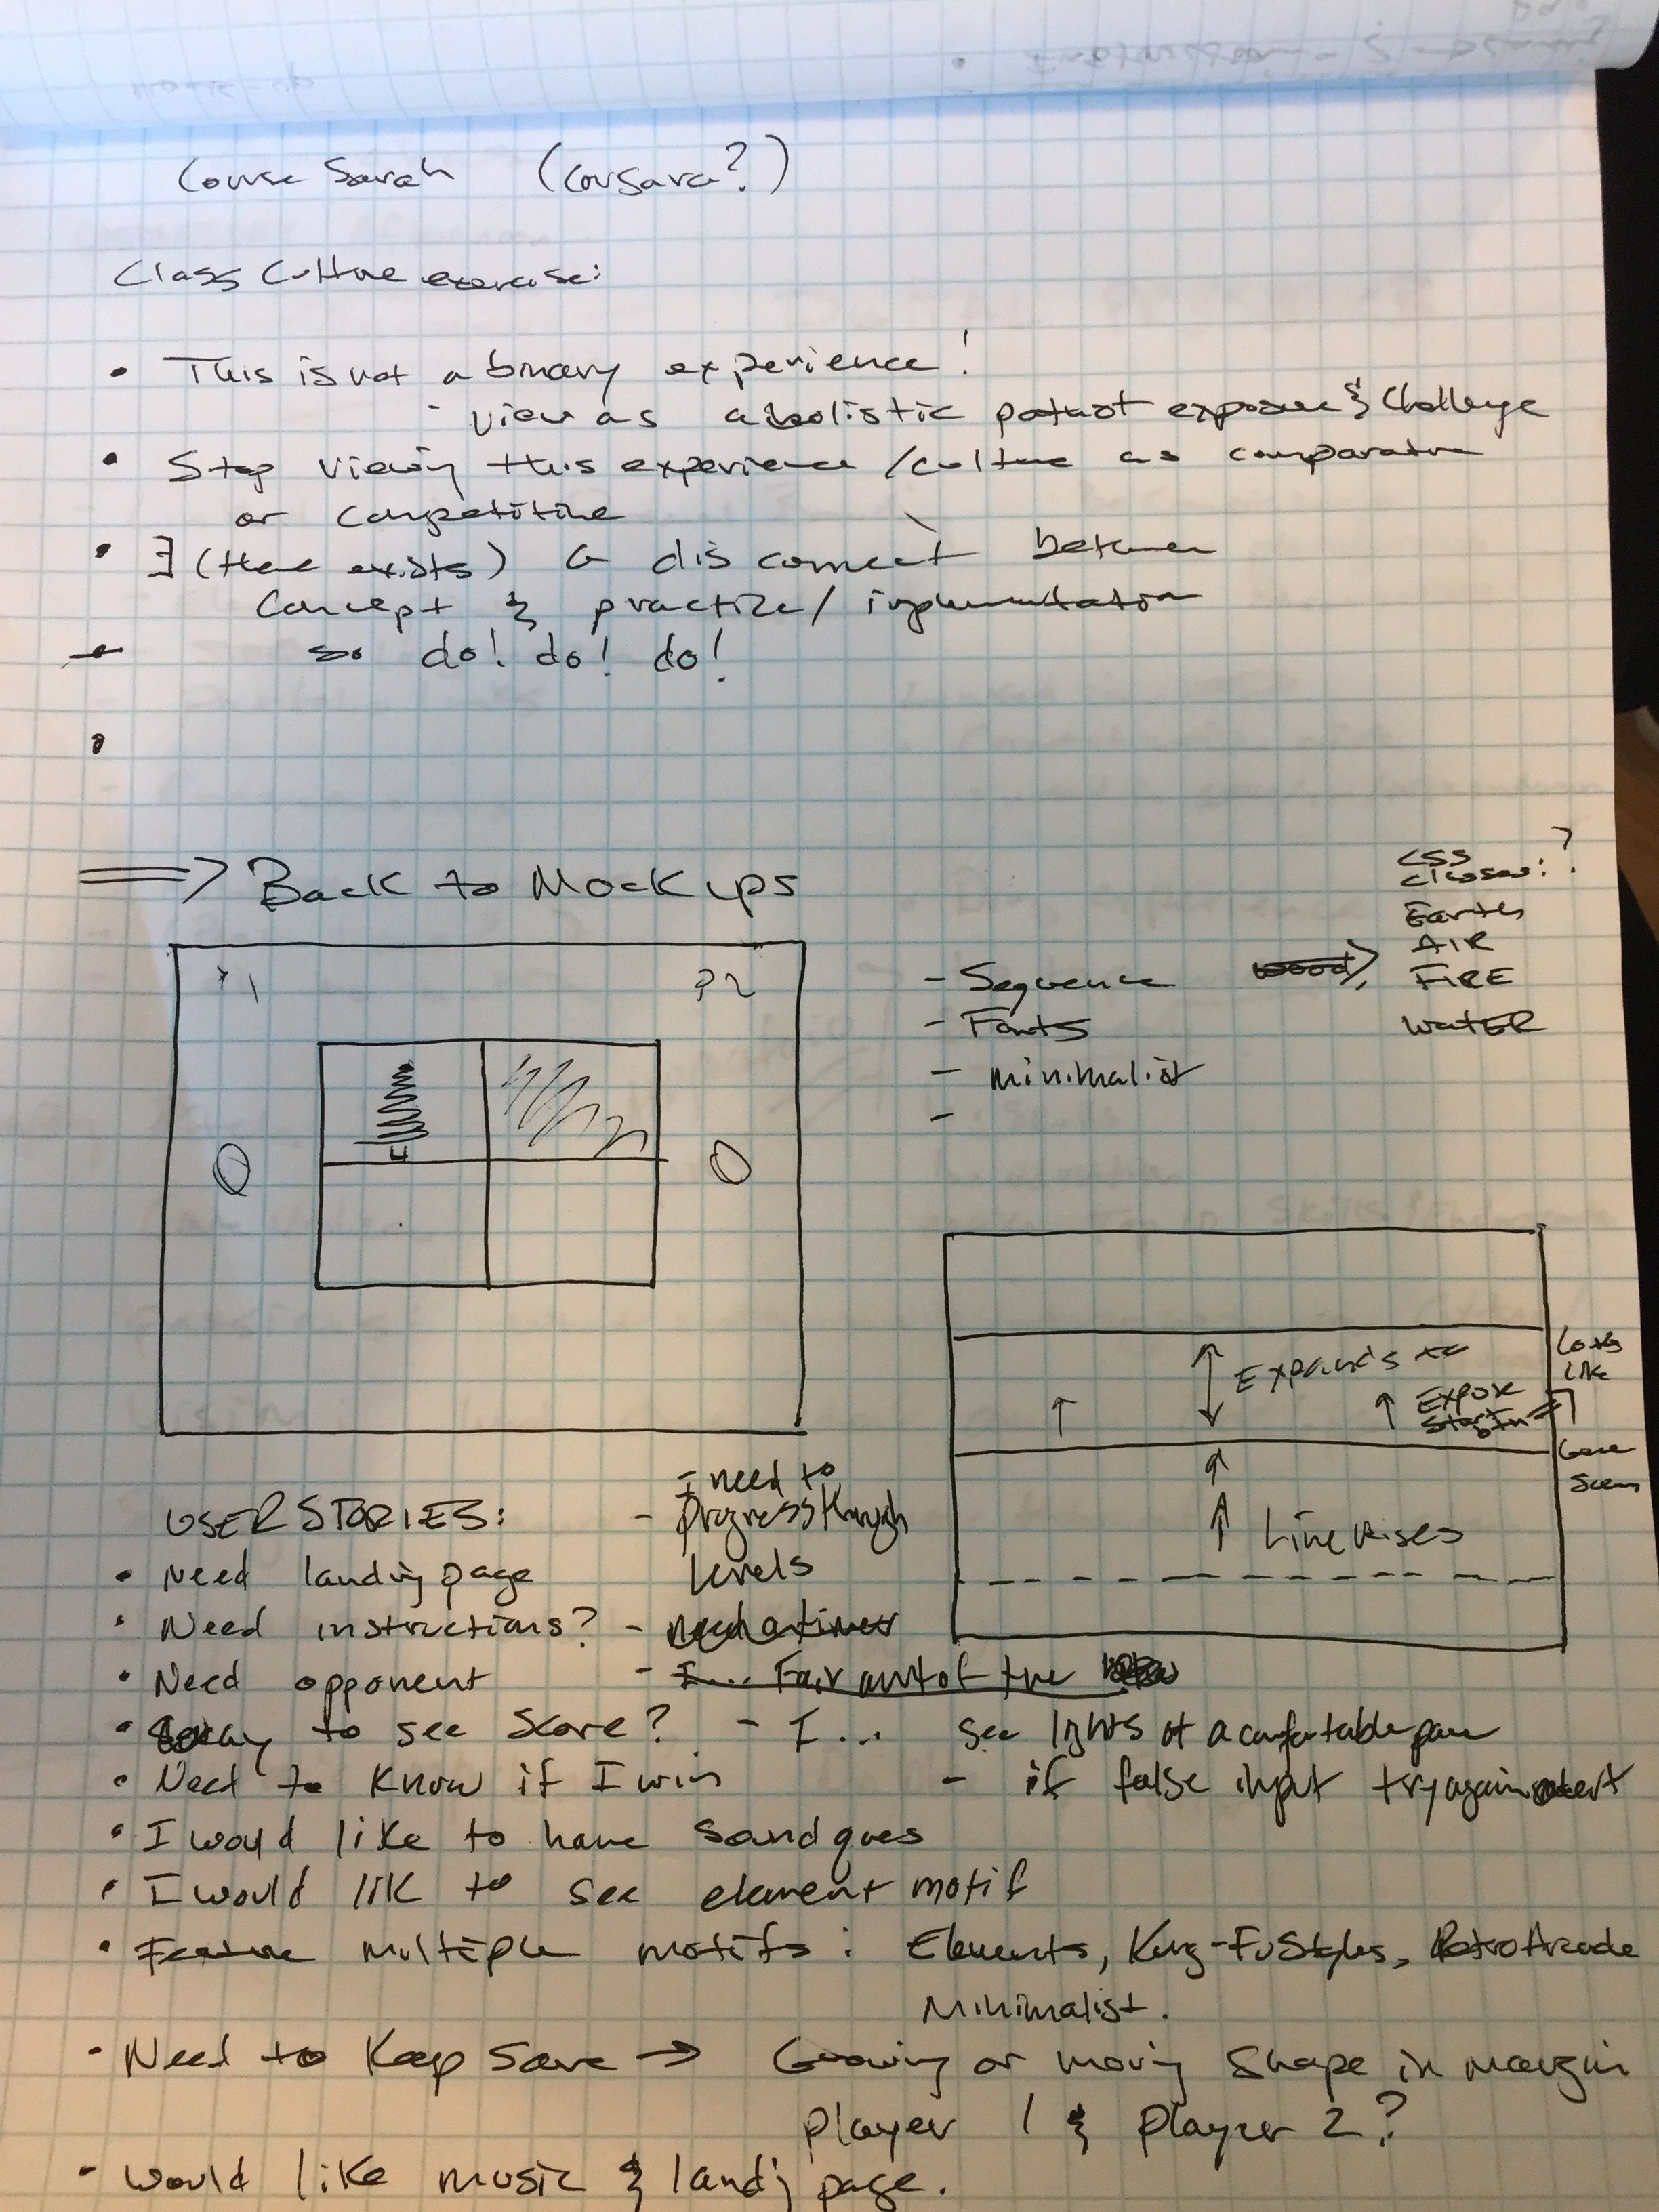 Course Sarah (Coursara?)
Class Culture exercise:
• This is not a binary experience!
- View as a holistic exposure & Challenge
• Stop viewing this experience/culture as comparative
or competitive
• ∃ (there exists) a disconnect between
concept & practice/implementation
so do! do! do!
•
⇒ Back to Mockups
CSS ?
classes:
Earth
AIR
FIRE
WatER
P1 P2
- Sequence
- Fonts
- minimalist
-
Expands to
Expose
Looks
like
Game
Line Rises
USER STORIES:
• Need landing page
• Need instructions?
• Need opponent
• to see score?
• Need to know if I win
• I would like to have sound ques
• I would lik to see element motif
• Feature multiple motifs: Elements, Kung-Fu Styles, Retro Arcade
Minimalist.
• Need to keep → Growing or moving shape in margin
player 1 & player 2?
• would like music & landing page.
- I need to
progress through
levels
- need a timer
- I... Fair amt of time
- I... see lights at a comfortable pace
- if false input try again alert